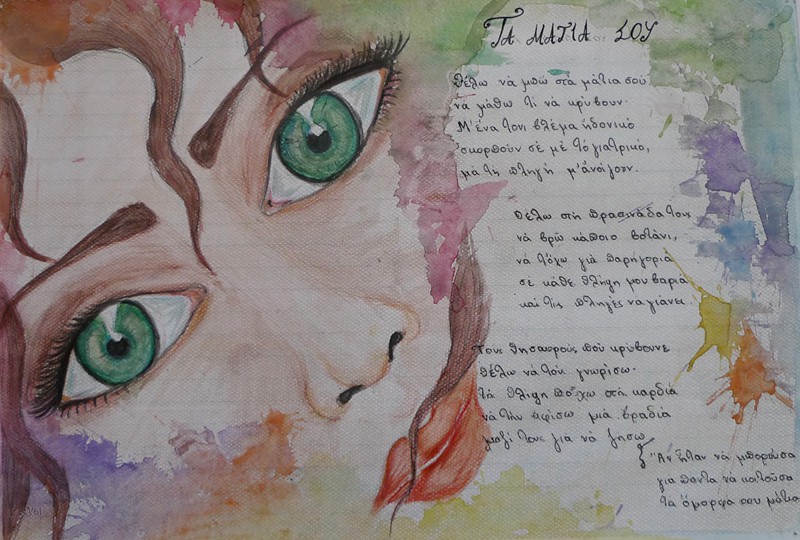 ΤΑ ΜΑΤΙΑ ΣΟΥ
Θέλω νά μπώ στά μάτια σού
νά μάθω τί νά κρύβουν·
Μ' ένα τους βλέμα ήδονικό
σκορπούν σέ μέ τό γιατρικό,
μα τη πληγή μ' ανοίγουν.
Θέλω στη πρασινάδα τους
νά βρῶ κάποιο βοτάνι,
νά τόχω γιά παρηγοριά
σε κάθε θλίψη μου βαριά
και τις πληγές να γιάνει.
Τους θησαυρούς πού κρύβουνε
θέλω νά τους γνωρίσω·
τή θλίψη πούχω στή καρδιά
νά την αφίσω μιά βραδιά
μαζί τους για νά ζησω
Αν ήταν νά μπορούσα
για πάντα νά κοιτούσα
τα όμορφα σου μάτια